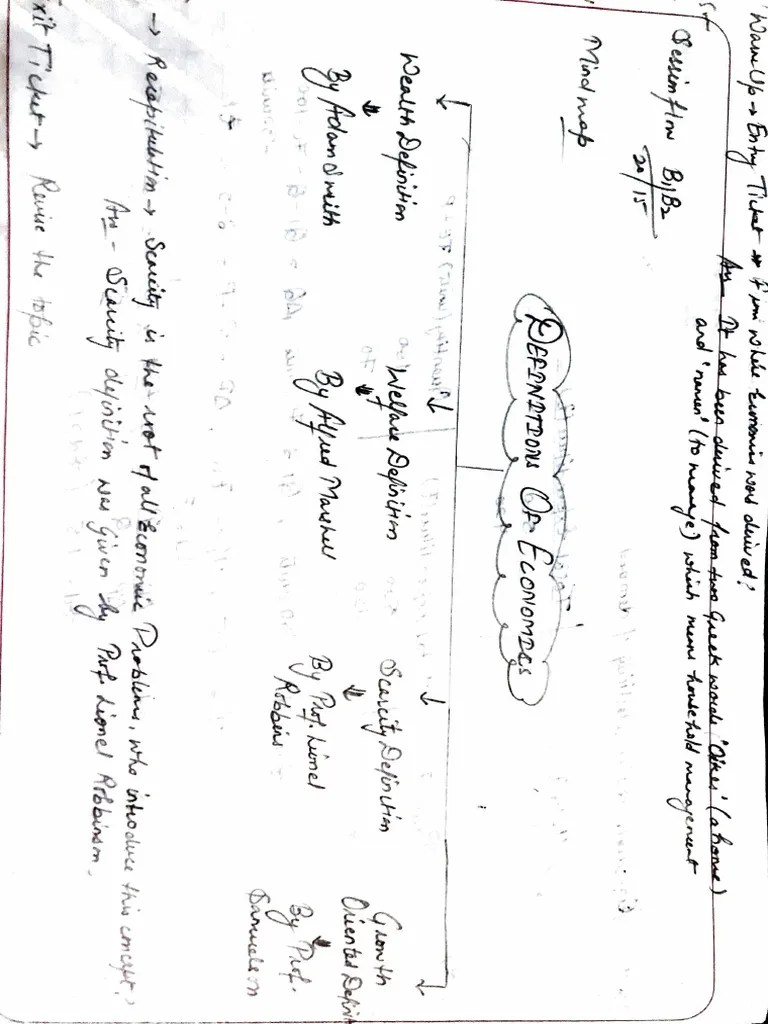 Warm Up → Entry Ticket → From where Economics word derived?
Ans It has been derived from two Greek words 'Oikos' (a home)
and 'nemein' (to manage) which means household management
Session flow B1/B2
20/15
Mind map
DEFINITIONS OF ECONOMICS
Wealth Definition
By Adam Smith
Welfare Definition
By Alfred Marshell
Scarcity Definition
By Prof. Lionel
Robbins
Growth
Oriented Definit
By Prof.
Samuelson
→ Recapitulation → Scarcity is the root of all Economic Problems, who introduce this concept?
Ans - Scarcity definition was given by Prof. Lionel Robbinson.
Exit Ticket → Revise the topic